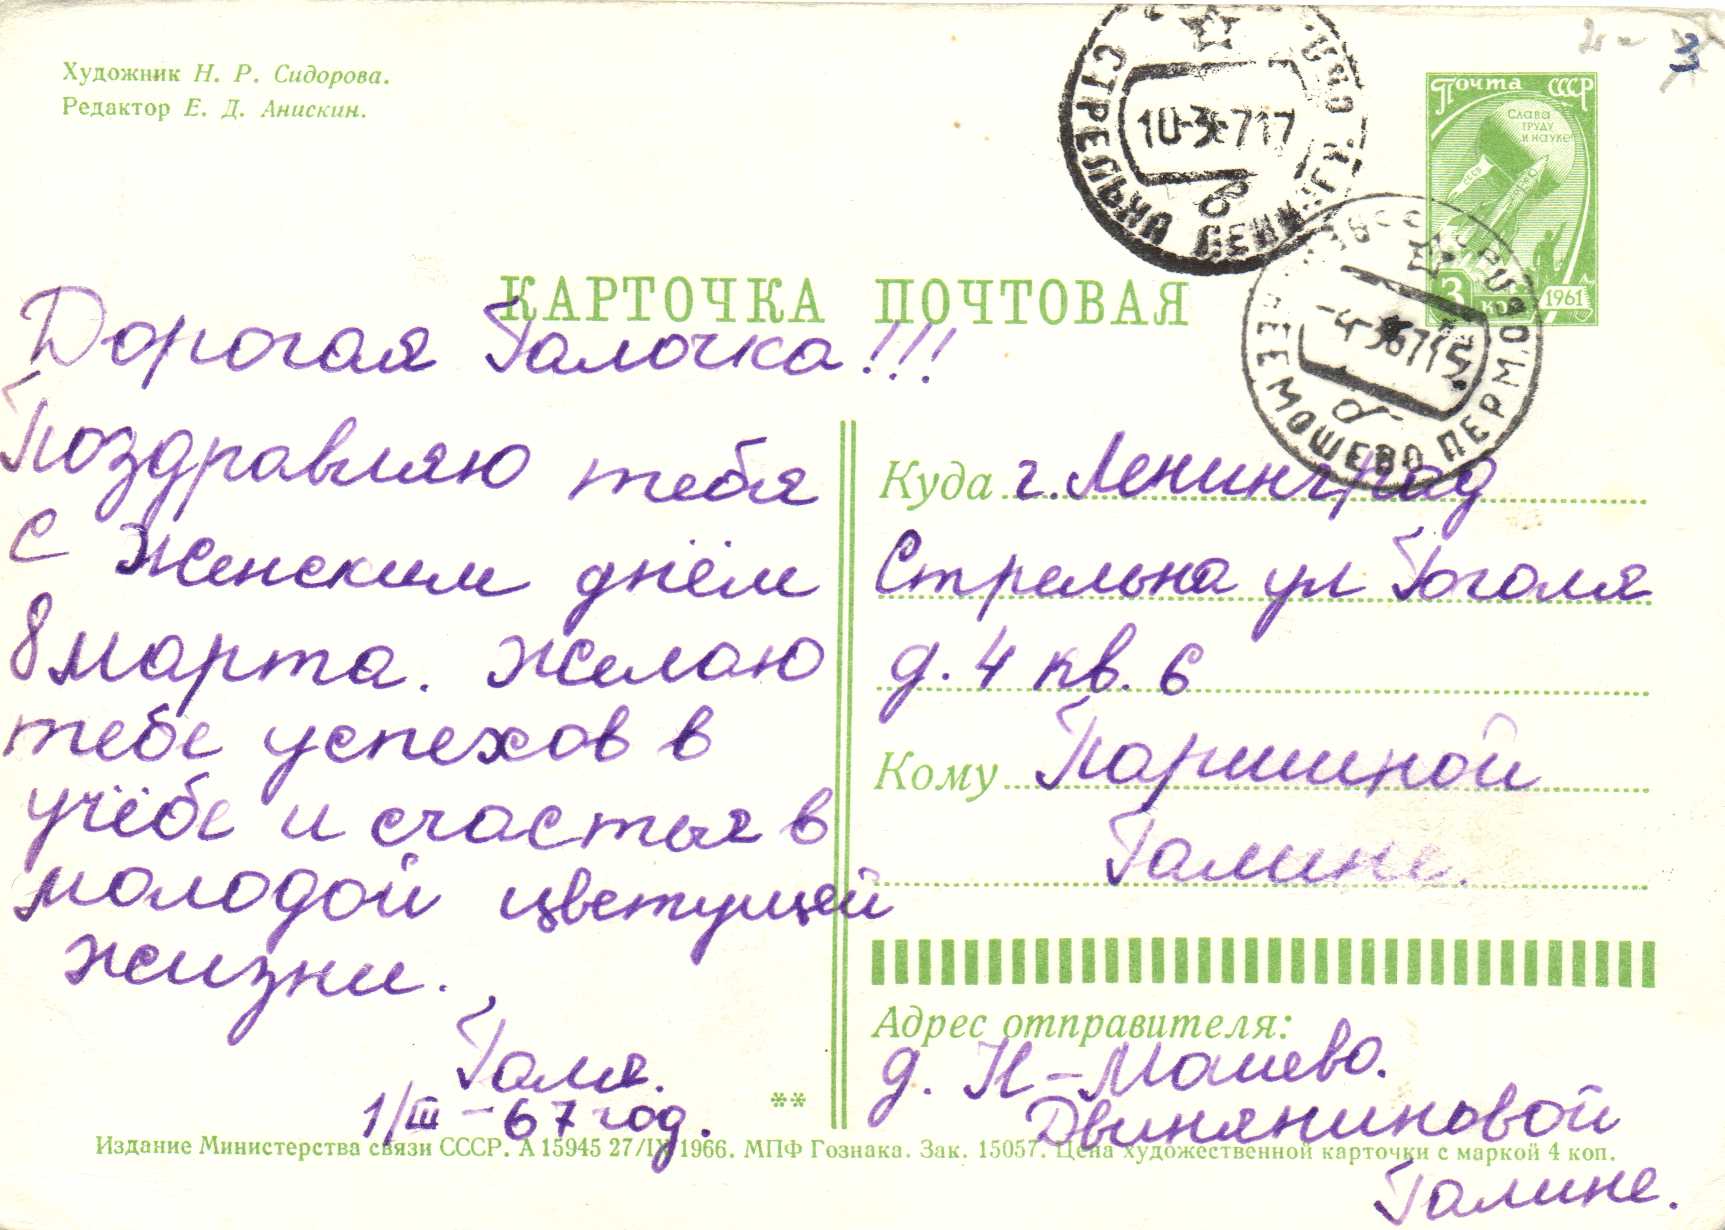 Художник Н. Р. Сидорова.
Редактор Е. Д. Анискин.
Почта СССР
Слава
труду
и науке
СССР
3 коп
1961
СТРЕЛЬНА ЛЕНИНГР
10-3-6717
в
-4-36715
б
ПЕРМ.О
3
КАРТОЧКА ПОЧТОВАЯ
Дорогая Галочка!!!
Поздравляю тебя
с Женским днём
8 марта. Желаю
тебе успехов в
учёбе и счастья в
молодой цветущей
жизни.
Галя.
1/III – 67 год.
Куда г. Ленинград
Стрельна ул Гоголя
д. 4 кв. 6
Кому Паршиной
Галине.
Адрес отправителя:
д. Н-Мошево.
Двиняниновой
Галине.
**
Издание Министерства связи СССР. А 15945 27/IX 1966. МПФ Гознака. Зак. 15057. Цена художественной карточки с маркой 4 коп.